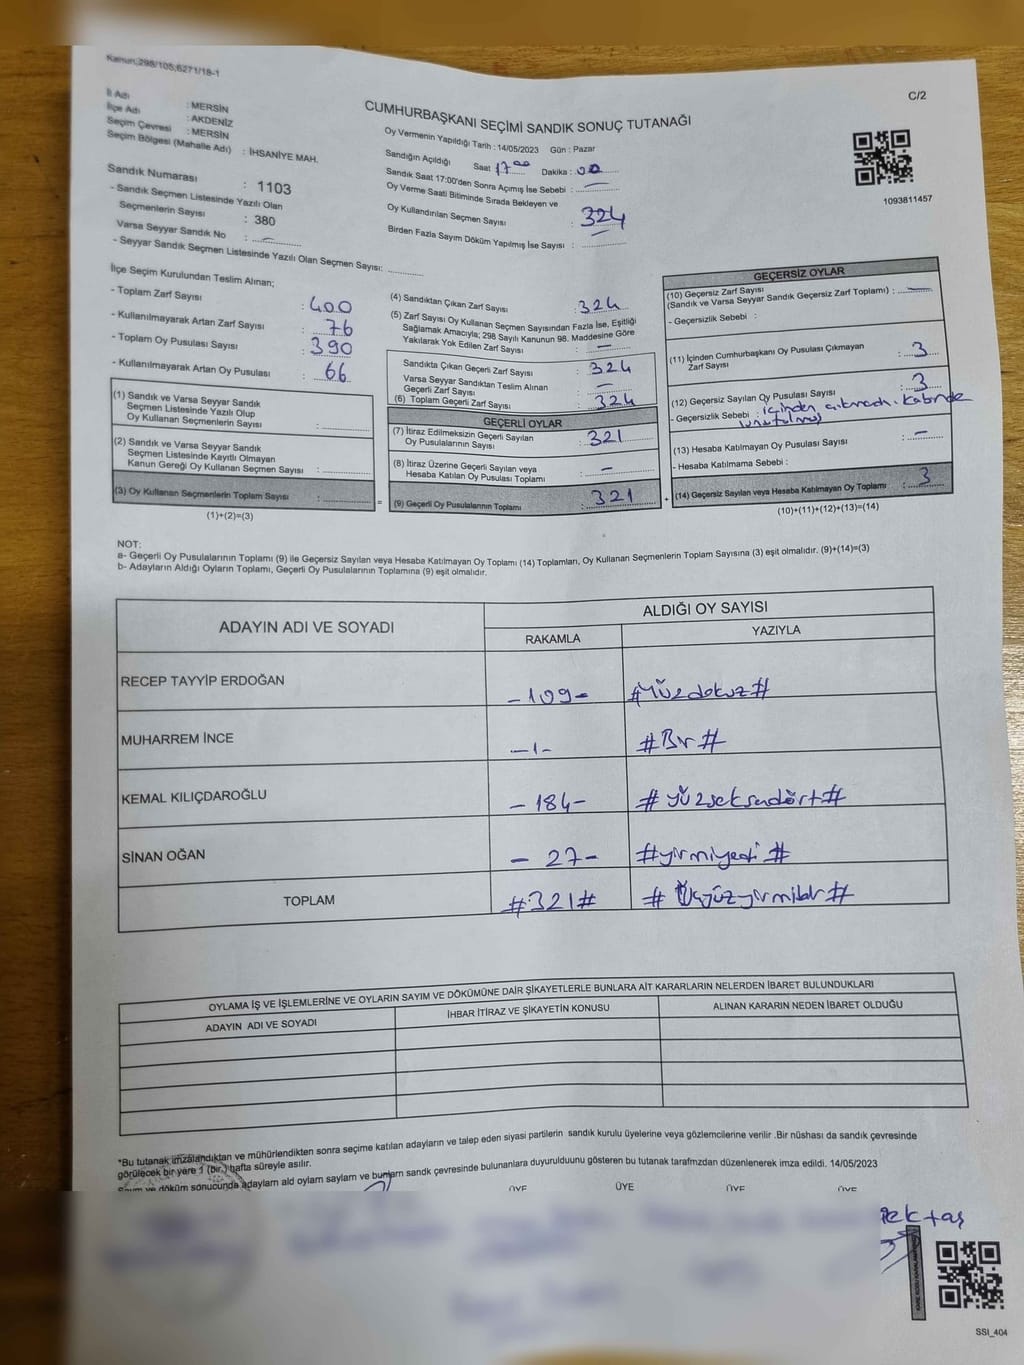 Kanun;298/105;6271/18-1
C/2
İl Adı : MERSİN
İlçe Adı : AKDENİZ
Seçim Çevresi : MERSİN
Seçim Bölgesi (Mahalle Adı) : İHSANİYE MAH.
Sandık Numarası : 1103
- Sandık Seçmen Listesinde Yazılı Olan
Seçmenlerin Sayısı : 380
Varsa Seyyar Sandık No : —
- Seyyar Sandık Seçmen Listesinde Yazılı Olan Seçmen Sayısı:
CUMHURBAŞKANI SEÇİMİ SANDIK SONUÇ TUTANAĞI
Oy Vermenin Yapıldığı Tarih : 14/05/2023 Gün : Pazar
Sandığın Açıldığı Saat 17 00 Dakika : 00
Sandık Saat 17:00'den Sonra Açımış İse Sebebi : —
Oy Verme Saati Bitiminde Sırada Bekleyen ve
Oy Kullandırılan Seçmen Sayısı : 324
Birden Fazla Sayım Döküm Yapılmış İse Sayısı :
1093811457
İlçe Seçim Kurulundan Teslim Alınan;
- Toplam Zarf Sayısı : 400
- Kullanılmayarak Artan Zarf Sayısı : 76
- Toplam Oy Pusulası Sayısı : 390
- Kullanılmayarak Artan Oy Pusulası : 66
(1) Sandık ve Varsa Seyyar Sandık
Seçmen Listesinde Yazılı Olup
Oy Kullanan Seçmenlerin Sayısı :
(2) Sandık ve Varsa Seyyar Sandık
Seçmen Listesinde Kayıtlı Olmayan
Kanun Gereği Oy Kullanan Seçmen Sayısı :
(3) Oy Kullanan Seçmenlerin Toplam Sayısı :
(1)+(2)=(3)
=
(4) Sandıktan Çıkan Zarf Sayısı : 324
(5) Zarf Sayısı Oy Kullanan Seçmen Sayısından Fazla İse, Eşitliği
Sağlamak Amacıyla; 298 Sayılı Kanunun 98. Maddesine Göre
Yakılarak Yok Edilen Zarf Sayısı : —
Sandıkta Çıkan Geçerli Zarf Sayısı : 324
Varsa Seyyar Sandıktan Teslim Alınan
Geçerli Zarf Sayısı : —
(6) Toplam Geçerli Zarf Sayısı : 324
GEÇERLİ OYLAR
(7) İtiraz Edilmeksizin Geçerli Sayılan
Oy Pusulalarının Sayısı : 321
(8) İtiraz Üzerine Geçerli Sayılan veya
Hesaba Katılan Oy Pusulası Toplamı : —
(9) Geçerli Oy Pusulalarının Toplamı : 321
+
GEÇERSİZ OYLAR
(10) Geçersiz Zarf Sayısı
(Sandık ve Varsa Seyyar Sandık Geçersiz Zarf Toplamı) : —
- Geçersizlik Sebebi :
(11) İçinden Cumhurbaşkanı Oy Pusulası Çıkmayan
Zarf Sayısı : 3
(12) Geçersiz Sayılan Oy Pusulası Sayısı : 3
- Geçersizlik Sebebi : içinden çıkmadı. kabinde
unutulmuş
(13) Hesaba Katılmayan Oy Pusulası Sayısı : —
- Hesaba Katılmama Sebebi :
(14) Geçersiz Sayılan veya Hesaba Katılmayan Oy Toplamı : 3
(10)+(11)+(12)+(13)=(14)
NOT:
a- Geçerli Oy Pusulalarının Toplamı (9) ile Geçersiz Sayılan veya Hesaba Katılmayan Oy Toplamı (14) Toplamları, Oy Kullanan Seçmenlerin Toplam Sayısına (3) eşit olmalıdır. (9)+(14)=(3)
b- Adayların Aldığı Oyların Toplamı, Geçerli Oy Pusulalarının Toplamına (9) eşit olmalıdır.
ADAYIN ADI VE SOYADI
ALDIĞI OY SAYISI
RAKAMLA YAZIYLA
RECEP TAYYİP ERDOĞAN -109- #Yüzdokuz#
MUHARREM İNCE -1- #Bir#
KEMAL KILIÇDAROĞLU -184- #yüzseksendört#
SİNAN OĞAN -27- #yirmiyedi#
TOPLAM #321# #Üçyüzyirmibir#
OYLAMA İŞ VE İŞLEMLERİNE VE OYLARIN SAYIM VE DÖKÜMÜNE DAİR ŞİKAYETLERLE BUNLARA AİT KARARLARIN NELERDEN İBARET BULUNDUKLARI
ADAYIN ADI VE SOYADI İHBAR İTİRAZ VE ŞİKAYETİN KONUSU ALINAN KARARIN NEDEN İBARET OLDUĞU
*Bu tutanak imzalandıktan ve mühürlendikten sonra seçime katılan adayların ve talep eden siyasi partilerin sandık kurulu üyelerine veya gözlemcilerine verilir .Bir nüshası da sandık çevresinde
görülecek bir yere 1 (bir.) hafta süreyle asılır.
Sayım ve döküm sonucunda adayların ald oyların sayların ve bunların sandk çevresinde bulunanlara duyurulduunu gösteren bu tutanak tarafmzdan düzenlenerek imza edildi. 14/05/2023
ÜYE ÜYE ÜYE ÜYE
ektaş
SSI_404